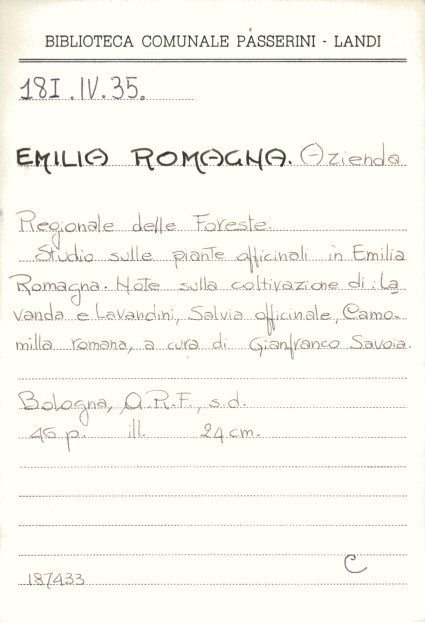 BIBLIOTECA COMUNALE PASSERINI - LANDI
18I.IV.35.
EMILIA ROMAGNA. Azienda
Regionale delle Foreste.
Studio sulle piante officinali in Emilia
Romagna. Note sulla coltivazione di: La
vanda e Lavandini, Salvia officinale, Camo-
milla romana, a cura di Gianfranco Savoia.
Bologna, A.R.F., s.d.
46 p. ill. 24 cm.
C
187433